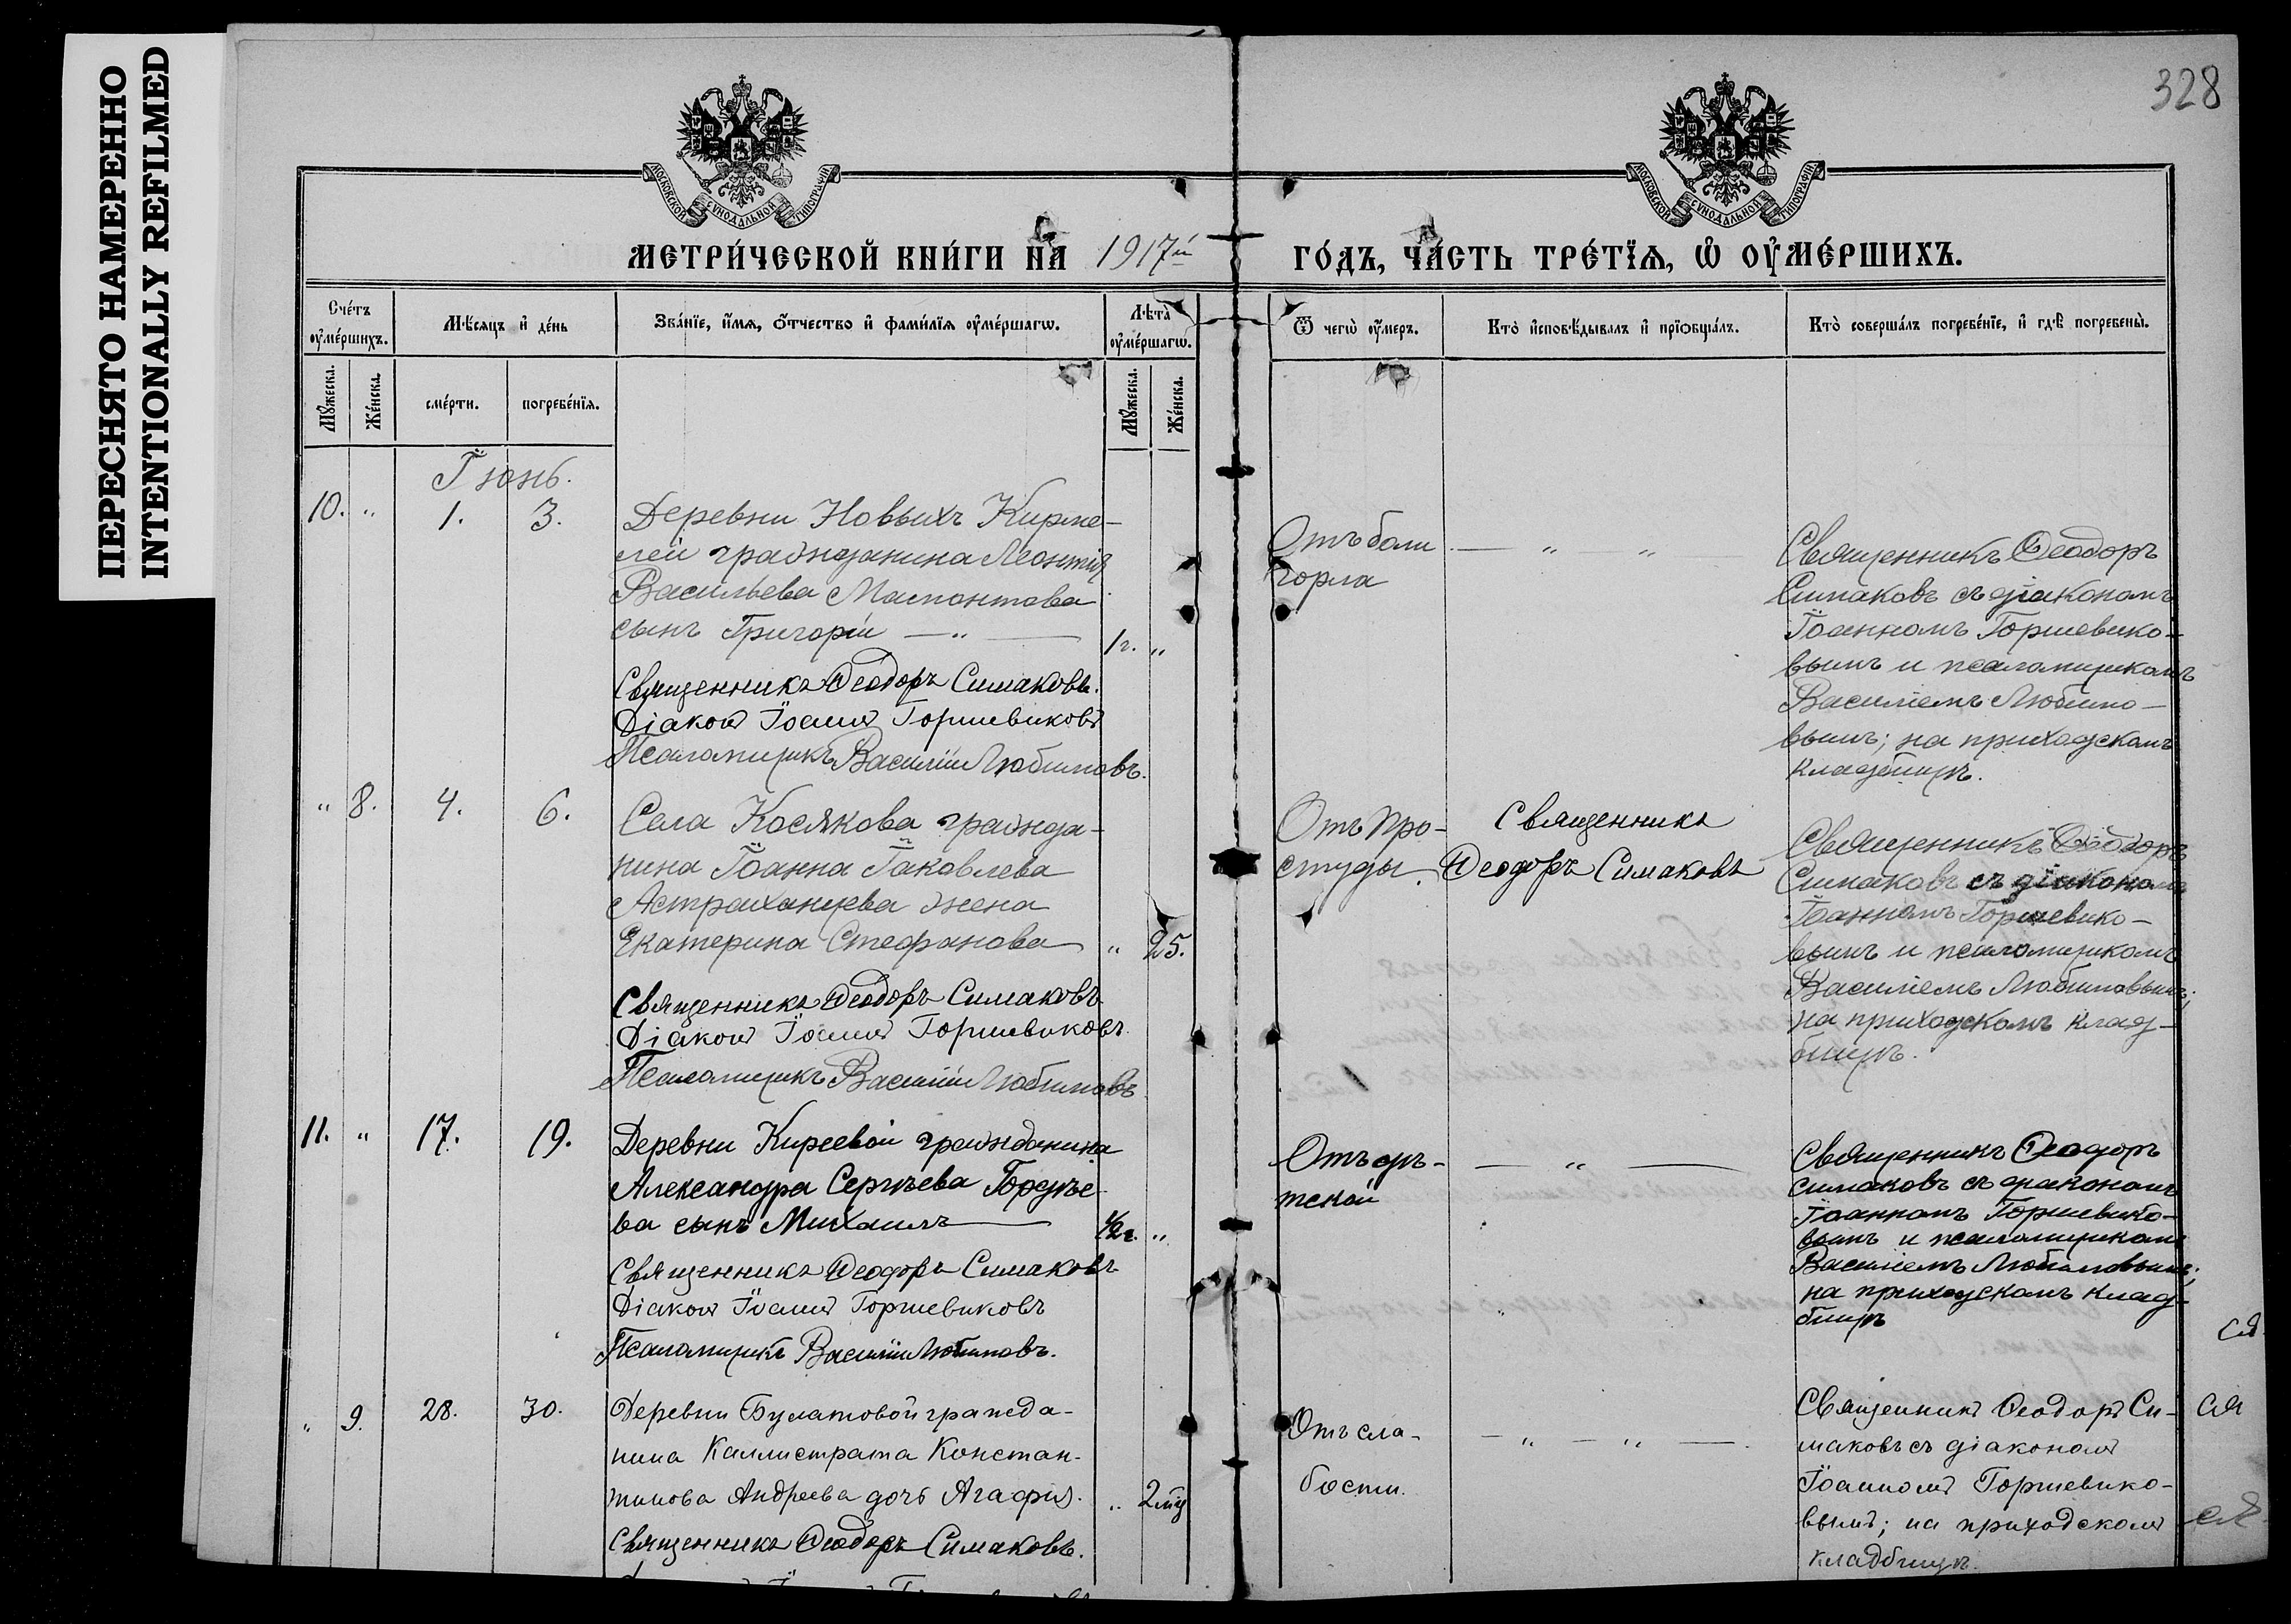 ПЕРЕСНЯТО НАМЕРЕННО
INTENTIONALLY REFILMED
328
МОСКОВСКОЙ СѴНОДАЛЬНОЙ ТИПОГРАФІИ
МОСКОВСКОЙ СѴНОДАЛЬНОЙ ТИПОГРАФІИ
МЕТРИ́ЧЕСКОЙ КНИ́ГИ НА 1917й
ГО́ДЪ, ЧА́СТЬ ТРЕ́ТЇѦ, Ѡ҆ ОУ҆МЕ́РШИХЪ.
Сче́тъ оу҆ме́ршихъ.
Мѣ́сяцъ и҆ де́нь
Зва́нїе, и҆́мя, ѻ҆́тчество и҆ фами́лїя оу҆ме́ршагѡ.
Лѣ́та̀ оу҆ме́ршагѡ.
Ѿ чегѡ̀ оу҆́меръ.
Кто̀ и҆сповѣ́дывалъ и҆ прїѻбща́лъ.
Кто̀ соверша́лъ погребе́нїе, и҆ гдѣ̀ погребены̀.
Мꙋ́жеска.
Же́нска.
сме́рти.
погребе́нїѧ.
Мꙋ́жеска.
Же́нска.
Іюнь.
10. „ 1. 3.
Деревни Новыхъ Кирме-
лей гражданина Леонтія
Васильева Мамонтова
сынъ Григорій — „ — 1 г. „
Священникъ Ѳеодоръ Симаковъ.
Діаконъ Іоаннъ Горшевиковъ
Псаломщикъ Василій Любимовъ.
Отъ боли
горла
— „ — „ —
Священникъ Ѳеодоръ
Симаковъ съ діакономъ
Іоанномъ Горшевико-
вымъ и псаломщикомъ
Василіемъ Любимо-
вымъ; на приходскомъ
кладбищѣ.
„ 8. 4. 6.
Села Косякова гражда-
нина Іоанна Іаковлева
Астраханцева жена
Екатерина Стефанова „ 25.
Священникъ Ѳеодоръ Симаковъ
Діаконъ Іоаннъ Горшевиковъ.
Псаломщикъ Василій Любимовъ
Отъ про-
студы.
Священникъ
Ѳеодоръ Симаковъ
Священникъ Ѳеодоръ
Симаковъ съ діакономъ
Іоанномъ Горшевико-
вымъ и псаломщикомъ
Василіемъ Любимовымъ;
на приходскомъ клад-
бищѣ.
11. „ 17. 19.
Деревни Киреевой гражданина
Александра Сергѣева Гордѣе-
ва сынъ Михаилъ — 1/2 г. „
Священникъ Ѳеодоръ Симаковъ
Діаконъ Іоаннъ Горшевиковъ
Псаломщикъ Василій Любимовъ.
Отъ дѣ-
тской
— „ —
Священникъ Ѳеодоръ
Симаковъ съ діакономъ
Іоанномъ Горшевико-
вымъ и псаломщикомъ
Василіемъ Любимовымъ;
на приходскомъ клад-
бищѣ
„ 9. 28. 30.
Деревни Булатовой гражда-
нина Каллистрата Констан-
тинова Андреева дочь Агафія. „
Священникъ Ѳеодоръ Симаковъ.
Отъ сла-
бости.
— „ — „ —
Священникъ Ѳеодоръ Си-
маковъ съ діакономъ
Іоанномъ Горшевико-
вымъ; на приходскомъ
кладбищѣ.